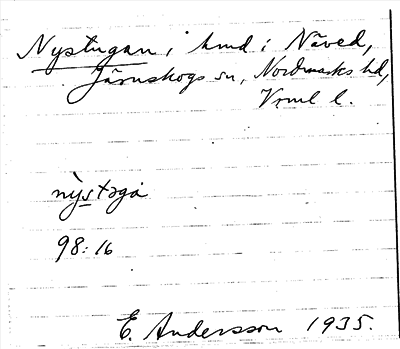 Nystugan, hmd i Näved,
Järnskogs sn, Nordmarks hd,
Vrml l.
nystəga
98:16
E. Andersson 1935.